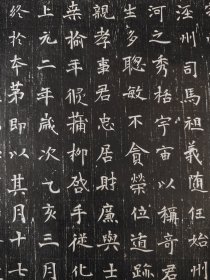 涇州司馬祖義隨任始州
河之秀括宇宙以稱奇君
生多聰敏不貪榮位遁跡
親孝事君忠居財廉與士
桒榆年蒲柳啓手從化
上元二年歲次乙亥三月
終於夲苐即以其月十七